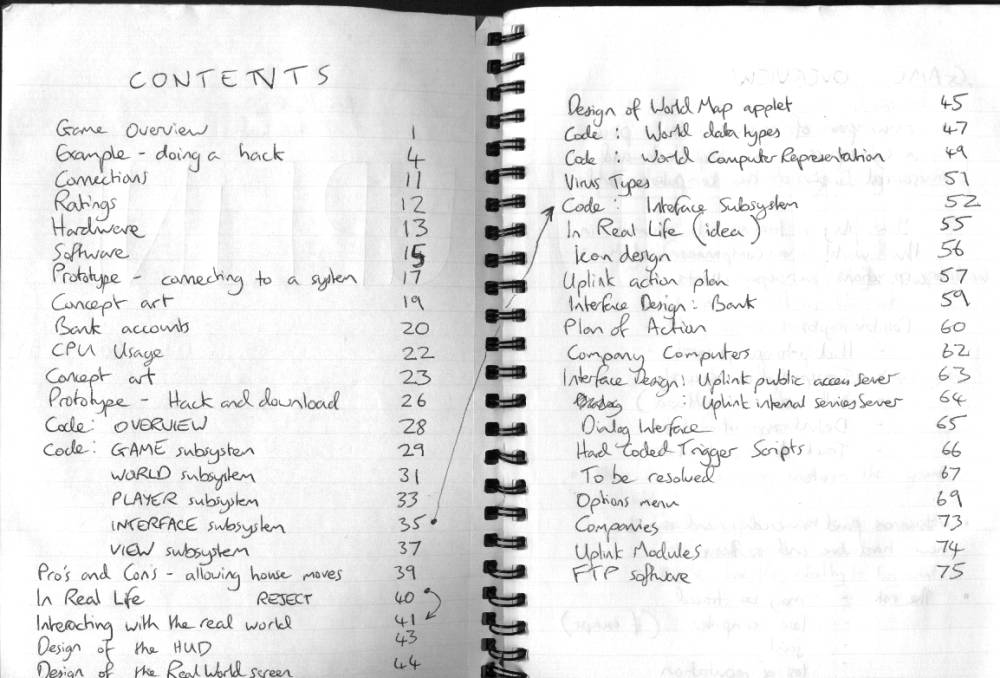 CONTENTS
Game Overview 1
Example - doing a hack 4
Connections 11
Ratings 12
Hardware 13
Software 15
Prototype - connecting to a system 17
Concept art 19
Bank accounts 20
CPU Usage 22
Concept art 23
Prototype - Hack and download 26
Code: OVERVIEW 28
Code: GAME subsystem 29
WORLD subsystem 31
PLAYER subsystem 33
INTERFACE subsystem 35
VIEW subsystem 37
Pro's and Con's - allowing house moves 39
In Real Life REJECT 40
Interacting with the real world 41
Design of the HUD 43
Design of the Real World screen 44
Design of World Map applet 45
Code: World data types 47
Code: World Computer Representation 49
Virus Types 51
Code: Interface Subsystem 52
In Real Life (idea) 55
Icon design 56
Uplink action plan 57
Interface Design: Bank 59
Plan of Action 60
Company Computers 62
Interface Design: Uplink public access server 63
: Uplink internal services Server 64
Dialog Interface 65
Hard Coded Trigger Scripts 66
To be resolved 67
Options menu 69
Companies 73
Uplink Modules 74
FTP software 75